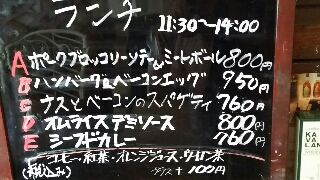 ランチ 11:30〜14:00
A ポークブロッコリーソテー&ミートボール 800円
B ハンバーグ&ベーコンエッグ 950円
C ナスとベーコンのスパゲティ 760円
D オムライス デミソース 800円
E シーフドカレー 760円
コーヒー・紅茶・オレンジジュース・ウーロン茶
(税込み) プラス+100円
KAVALAN